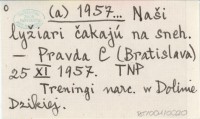 o
(a) 1957... Naši
lyžiari čakajú na sneh.
— Pravda C (Bratislava)
25 XI 1957. TNP
Treningi narc. w Dolinie
Dzikiej.